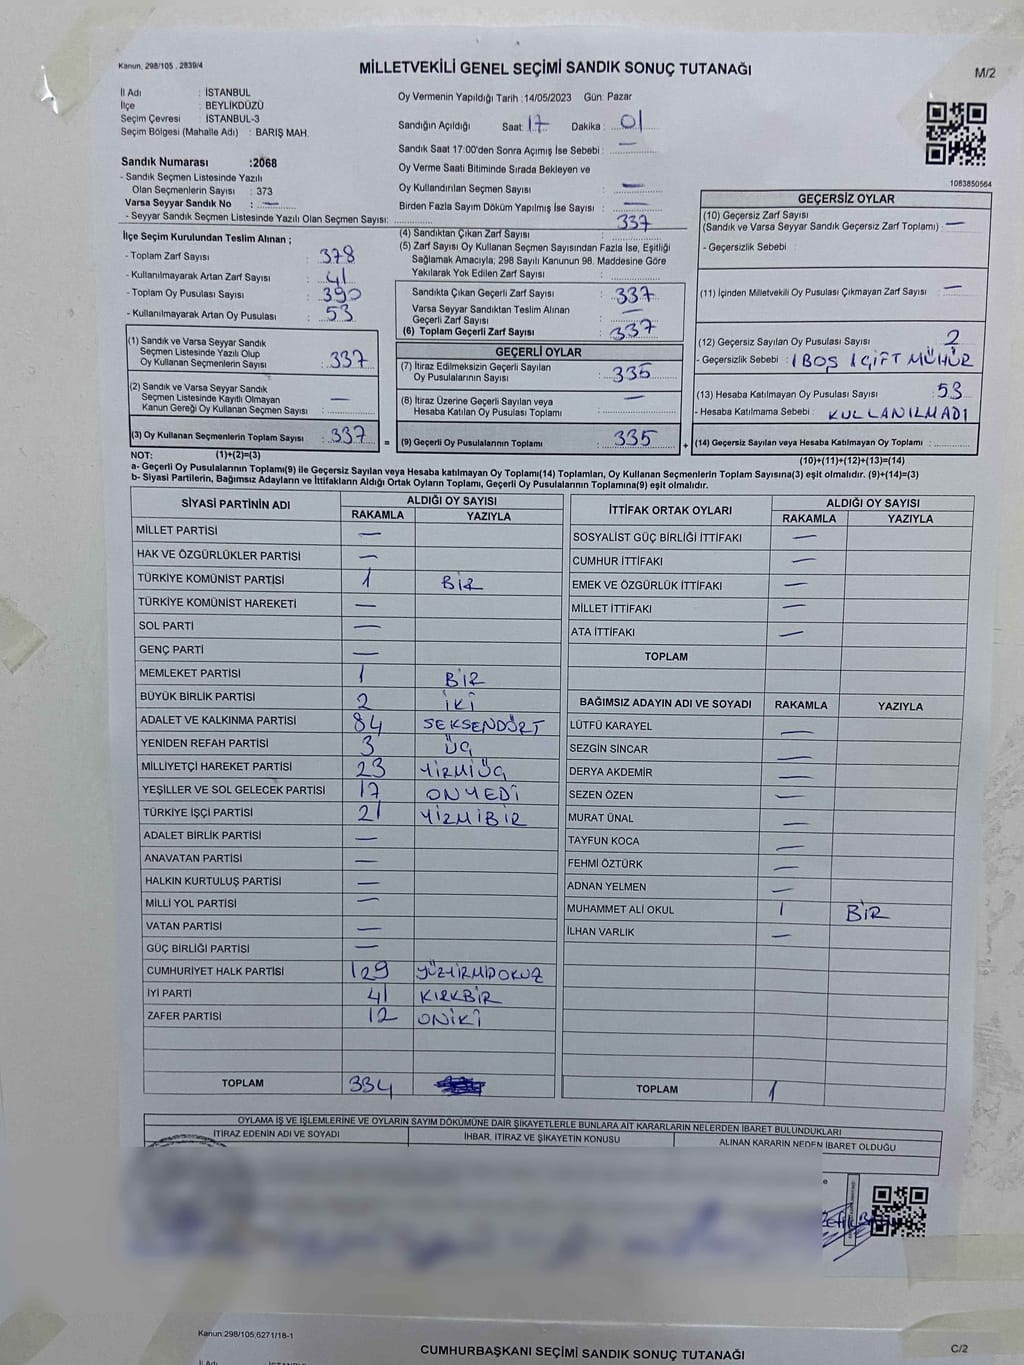 Kanun, 298/105 , 2839/4
MİLLETVEKİLİ GENEL SEÇİMİ SANDIK SONUÇ TUTANAĞI
M/2
İl Adı : İSTANBUL
İlçe : BEYLİKDÜZÜ
Seçim Çevresi : İSTANBUL-3
Seçim Bölgesi (Mahalle Adı) : BARIŞ MAH.
Sandık Numarası :2068
- Sandık Seçmen Listesinde Yazılı
Olan Seçmenlerin Sayısı : 373
Varsa Seyyar Sandık No : —
- Seyyar Sandık Seçmen Listesinde Yazılı Olan Seçmen Sayısı:
Oy Vermenin Yapıldığı Tarih :14/05/2023 Gün: Pazar
Sandığın Açıldığı Saat: 17 Dakika : 01
Sandık Saat 17:00'den Sonra Açımış İse Sebebi : —
Oy Verme Saati Bitiminde Sırada Bekleyen ve
Oy Kullandırılan Seçmen Sayısı : —
Birden Fazla Sayım Döküm Yapılmış İse Sayısı : —
1083850564
İlçe Seçim Kurulundan Teslim Alınan ;
- Toplam Zarf Sayısı : 378
- Kullanılmayarak Artan Zarf Sayısı : 41
- Toplam Oy Pusulası Sayısı : 390
- Kullanılmayarak Artan Oy Pusulası : 53
(4) Sandıktan Çıkan Zarf Sayısı : 337
(5) Zarf Sayısı Oy Kullanan Seçmen Sayısından Fazla İse, Eşitliği
Sağlamak Amacıyla; 298 Sayılı Kanunun 98. Maddesine Göre
Yakılarak Yok Edilen Zarf Sayısı :
Sandıkta Çıkan Geçerli Zarf Sayısı : 337
Varsa Seyyar Sandıktan Teslim Alınan
Geçerli Zarf Sayısı : —
(6) Toplam Geçerli Zarf Sayısı : 337
GEÇERSİZ OYLAR
(10) Geçersiz Zarf Sayısı
(Sandık ve Varsa Seyyar Sandık Geçersiz Zarf Toplamı) : —
- Geçersizlik Sebebi :
(11) İçinden Milletvekili Oy Pusulası Çıkmayan Zarf Sayısı : —
(12) Geçersiz Sayılan Oy Pusulası Sayısı : 2
- Geçersizlik Sebebi : 1 BOŞ 1 ÇİFT MÜHÜR
(13) Hesaba Katılmayan Oy Sayısı : 53
- Hesaba Katılmama Sebebi : KULLANILMADI
(1) Sandık ve Varsa Seyyar Sandık
Seçmen Listesinde Yazılı Olup
Oy Kullanan Seçmenlerin Sayısı : 337
(2) Sandık ve Varsa Seyyar Sandık
Seçmen Listesinde Kayıtlı Olmayan
Kanun Gereği Oy Kullanan Seçmen Sayısı : —
(3) Oy Kullanan Seçmenlerin Toplam Sayısı : 337
GEÇERLİ OYLAR
(7) İtiraz Edilmeksizin Geçerli Sayılan
Oy Pusulalarının Sayısı : 335
(8) İtiraz Üzerine Geçerli Sayılan veya
Hesaba Katılan Oy Pusulası Toplamı : —
= (9) Geçerli Oy Pusulalarının Toplamı : 335
+ (14) Geçersiz Sayılan veya Hesaba Katılmayan Oy Toplamı :
NOT: (1)+(2)=(3)
(10)+(11)+(12)+(13)=(14)
a- Geçerli Oy Pusulalarının Toplamı(9) ile Geçersiz Sayılan veya Hesaba katılmayan Oy Toplamı(14) Toplamları, Oy Kullanan Seçmenlerin Toplam Sayısına(3) eşit olmalıdır. (9)+(14)=(3)
b- Siyasi Partilerin, Bağımsız Adayların ve İttifakların Aldığı Ortak Oyların Toplamı, Geçerli Oy Pusulalarının Toplamına(9) eşit olmalıdır.
SİYASİ PARTİNİN ADI ALDIĞI OY SAYISI
RAKAMLA YAZIYLA
MİLLET PARTİSİ —
HAK VE ÖZGÜRLÜKLER PARTİSİ —
TÜRKİYE KOMÜNİST PARTİSİ 1 BİR
TÜRKİYE KOMÜNİST HAREKETİ —
SOL PARTİ —
GENÇ PARTİ —
MEMLEKET PARTİSİ 1 BİR
BÜYÜK BİRLİK PARTİSİ 2 İKİ
ADALET VE KALKINMA PARTİSİ 84 SEKSENDÖRT
YENİDEN REFAH PARTİSİ 3 ÜÇ
MİLLİYETÇİ HAREKET PARTİSİ 23 YİRMİÜÇ
YEŞİLLER VE SOL GELECEK PARTİSİ 17 ONYEDİ
TÜRKİYE İŞÇİ PARTİSİ 21 YİRMİBİR
ADALET BİRLİK PARTİSİ —
ANAVATAN PARTİSİ —
HALKIN KURTULUŞ PARTİSİ —
MİLLİ YOL PARTİSİ —
VATAN PARTİSİ —
GÜÇ BİRLİĞİ PARTİSİ —
CUMHURİYET HALK PARTİSİ 129 YÜZYİRMİDOKUZ
İYİ PARTİ 41 KIRKBİR
ZAFER PARTİSİ 12 ONİKİ
TOPLAM 334
İTTİFAK ORTAK OYLARI ALDIĞI OY SAYISI
RAKAMLA YAZIYLA
SOSYALİST GÜÇ BİRLİĞİ İTTİFAKI —
CUMHUR İTTİFAKI —
EMEK VE ÖZGÜRLÜK İTTİFAKI —
MİLLET İTTİFAKI —
ATA İTTİFAKI —
TOPLAM
BAĞIMSIZ ADAYIN ADI VE SOYADI RAKAMLA YAZIYLA
LÜTFÜ KARAYEL —
SEZGİN SİNCAR —
DERYA AKDEMİR —
SEZEN ÖZEN —
MURAT ÜNAL —
TAYFUN KOCA —
FEHMİ ÖZTÜRK —
ADNAN YELMEN —
MUHAMMET ALİ OKUL 1 BİR
İLHAN VARLIK —
TOPLAM 1
OYLAMA İŞ VE İŞLEMLERİNE VE OYLARIN SAYIM DÖKÜMÜNE DAİR ŞİKAYETLERLE BUNLARA AİT KARARLARIN NELERDEN İBARET BULUNDUKLARI
İTİRAZ EDENİN ADI VE SOYADI İHBAR, İTİRAZ VE ŞİKAYETİN KONUSU ALINAN KARARIN NEDEN İBARET OLDUĞU
Kanun:298/105,6271/18-1
CUMHURBAŞKANI SEÇİMİ SANDIK SONUÇ TUTANAĞI
C/2
İl Adı